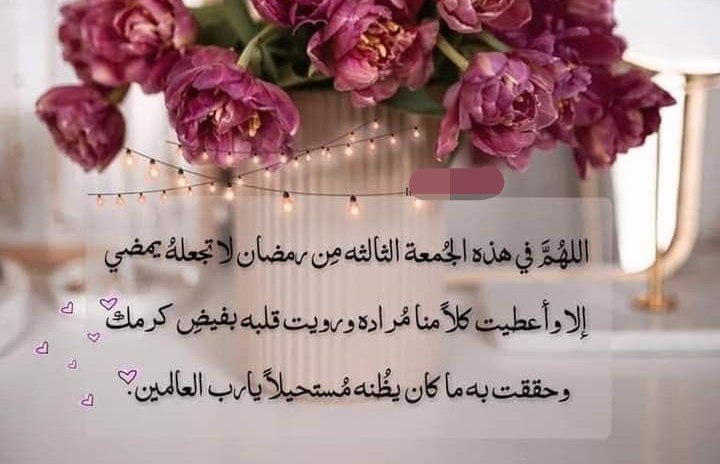 اللهُمَّ في هذه الجُمعة الثالثه مِن رمضان لا تجعلهُ يمضي
إلا وأعطيت كلاً منا مُراده ورويت قلبه بفيضِ كرمك
وحققت به ما كان يظُنه مُستحيلاً يارب العالمين.